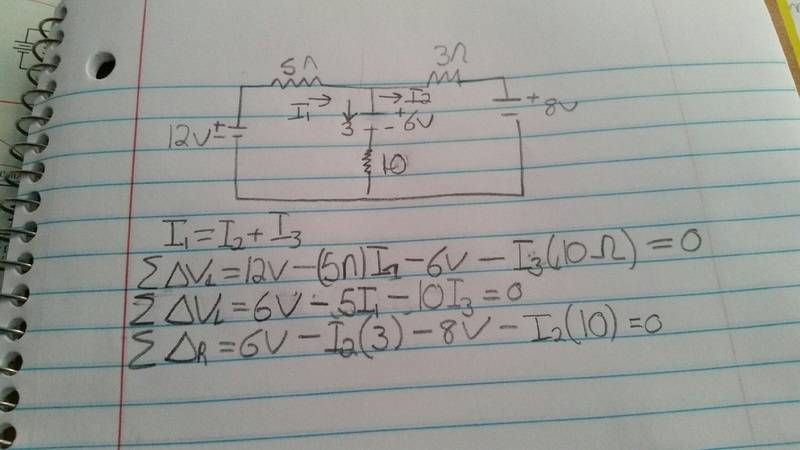 5Ω
3Ω
I₁ → 3 → I₂
12V + -
+ - 6V
+ 8V
10
I₁ = I₂ + I₃
ΣΔV₁ = 12V - (5Ω)I₁ - 6V - I₃(10Ω) = 0
ΣΔV_L = 6V - 5I₁ - 10I₃ = 0
ΣΔ_R = 6V - I₂(3) - 8V - I₂(10) = 0